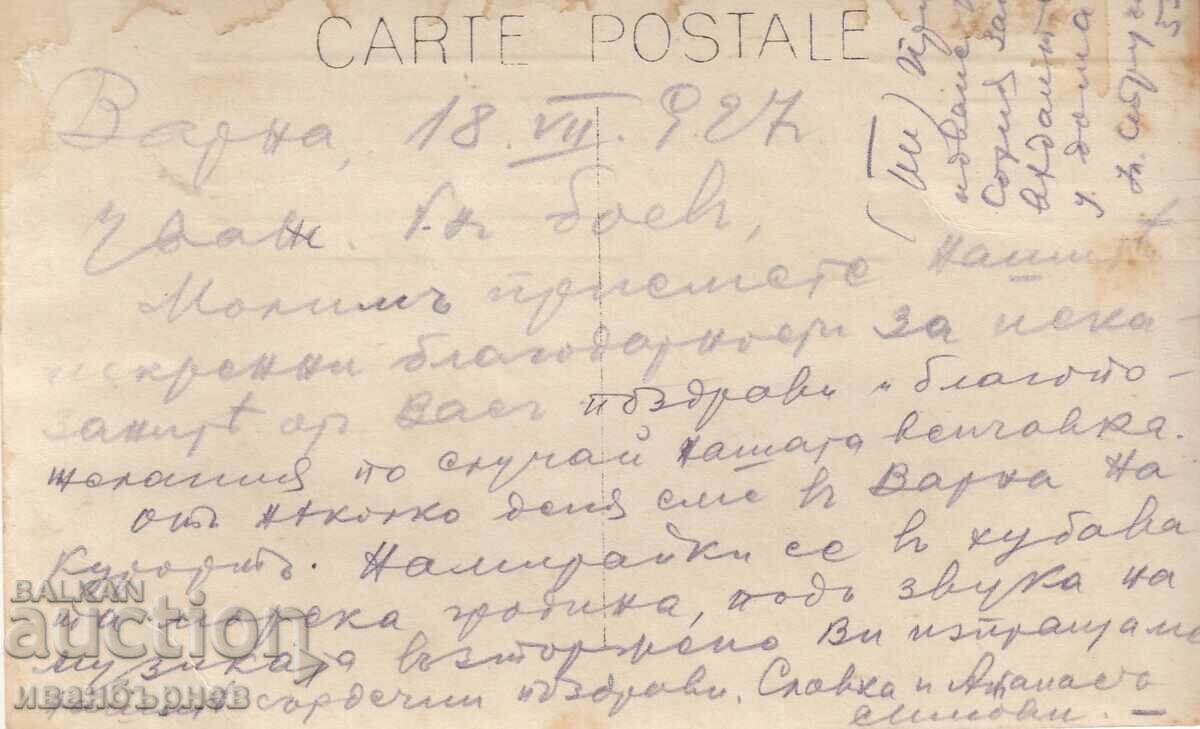 CARTE POSTALE
Варна, 18.VII.927
Уваж. Г-нъ Боевъ,
Молимъ приемете нашитѣ
искренни благодарности за иска-
занитѣ отъ Васъ поздрави и благопо-
желания по случай нашата венчавка.
Отъ нѣколко деня сме въ Варна на
курортъ. Намирайки се въ хубава
та морска градина, подъ звука на
музиката възторжено Ви изпращаме
сърдечни поздрави. Славка и Атанасъ
Симови. —
София
у дома
BALKAN
auction
иванбърнев